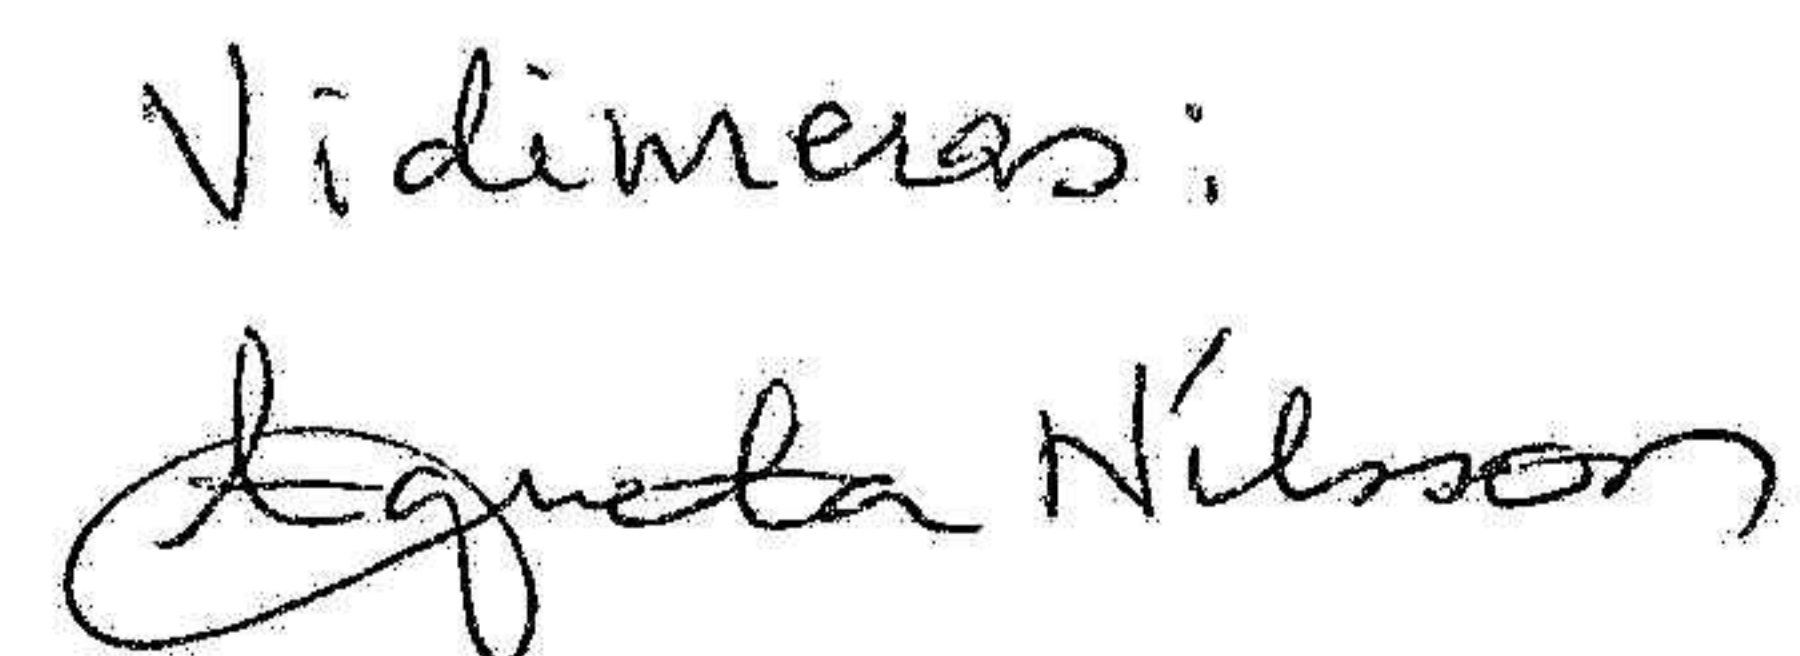 Vidimeras:
Agneta Nilsson